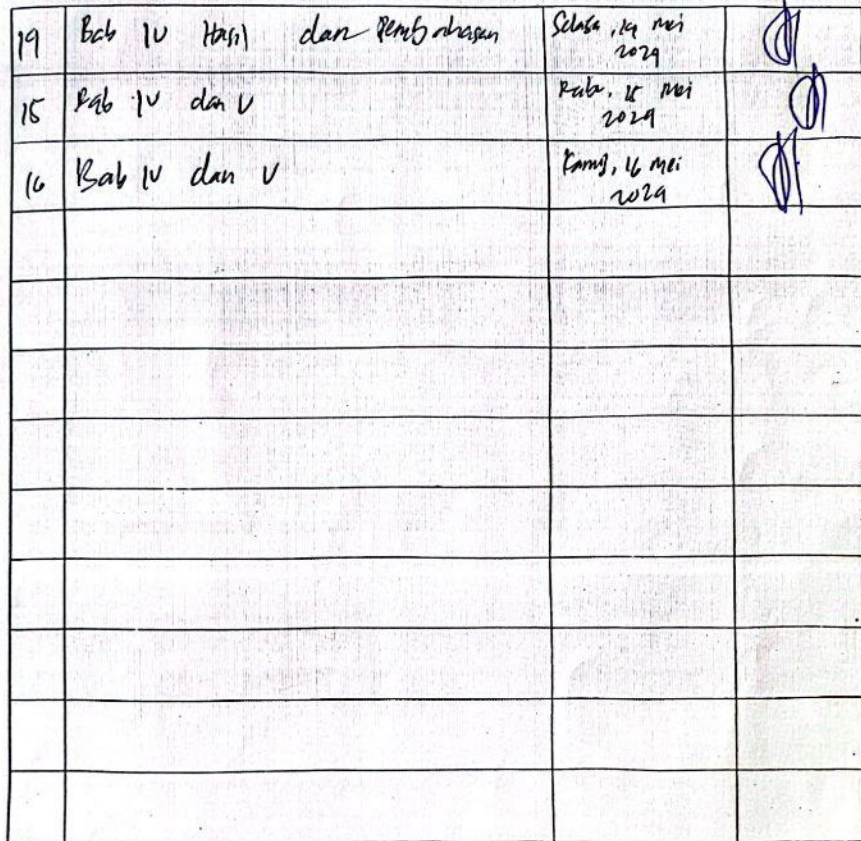 14 Bab IV Hasil dan Pembahasan Selasa, 14 Mei
2024
15 Bab IV dan V Rabu, 15 Mei
2024
16 Bab IV dan V Kamis, 16 Mei
2024